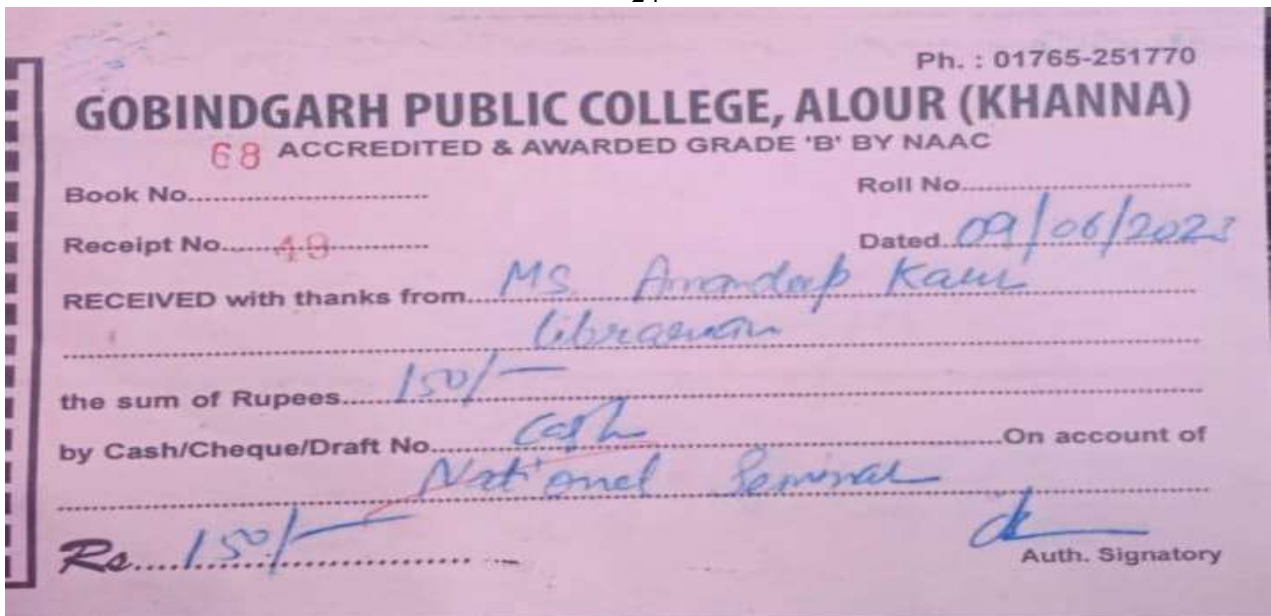 Ph. : 01765-251770
GOBINDGARH PUBLIC COLLEGE, ALOUR (KHANNA)
68 ACCREDITED & AWARDED GRADE 'B' BY NAAC
Book No............................ Roll No............................
Receipt No......49............ Dated..09/06/2023
RECEIVED with thanks from....MS. Amandeep Kaur
librarian
the sum of Rupees......150/-
by Cash/Cheque/Draft No.........Cash.........On account of
National Seminar
Rs.....150/-
Auth. Signatory